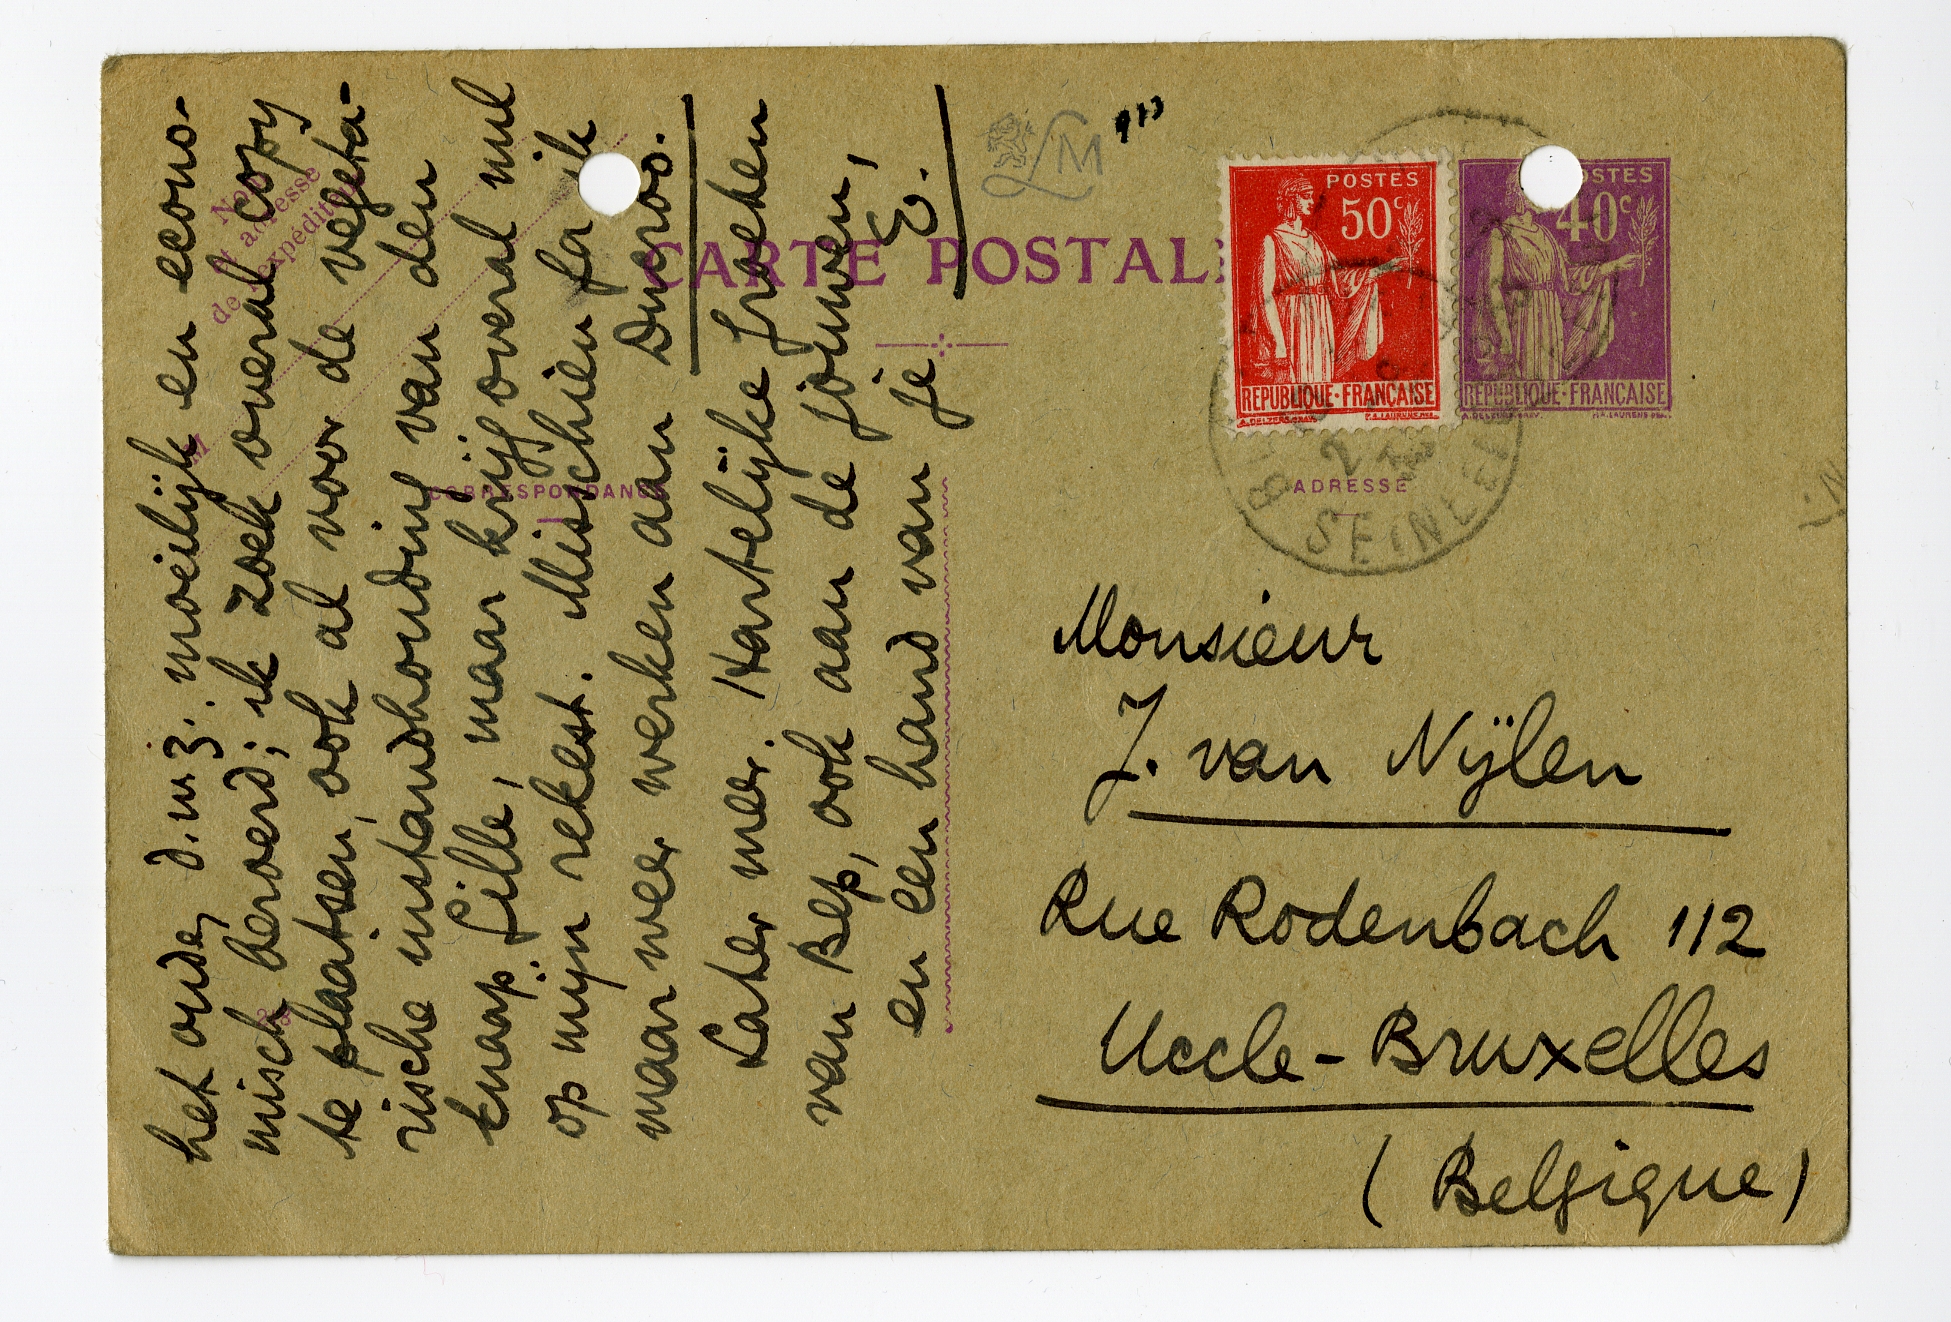 het oude, d.w.z. moeilijk en econo-
misch beroerd; ik zoek overal copy
te plaatsen, ook al voor de vegeta-
rische instandhouding van den
knaap Gille, maar krijg overal nul
op mijn rekest. Misschien ga ik
maar weer werken aan Ducroo.
Later meer. Hartelijke groeten
van Bep, ook aan de jouwen,
en een hand van je E.
Nom
et adresse
de l'expéditeur
M
CORRESPONDANCE
CARTE POSTALE
LM
POSTES
50c
REPUBLIQUE·FRANÇAISE
POSTES
40c
REPUBLIQUE·FRANÇAISE
SEINE
ADRESSE
Monsieur
J. van Nijlen
Rue Rodenbach 112
Uccle-Bruxelles
(Belgique)